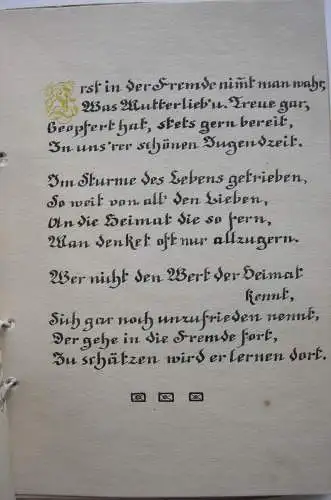 Erst in der Fremde nim̄t man wahr,
Was Mutterlieb' u. Treue gar,
Geopfert hat, stets gern bereit,
In uns'rer schönen Jugendzeit.
Im Sturme des Lebens getrieben,
So weit von all' den Lieben,
An die Heimat die so fern,
Man denket oft nur allzugern.
Wer nicht den Wert der Heimat
kennt,
Sich gar noch unzufrieden nennt,
Der gehe in die Fremde fort,
Zu schätzen wird er lernen dort.